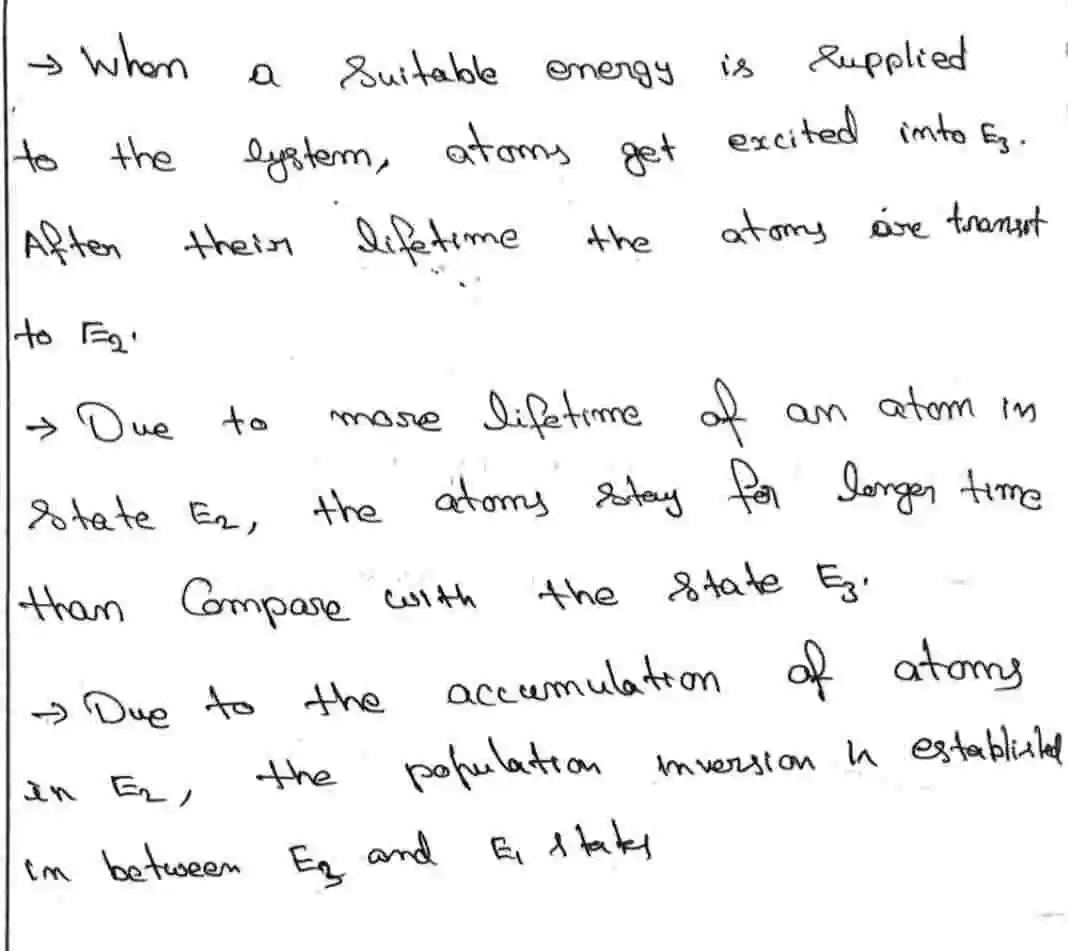 → When a suitable energy is supplied
to the system, atoms get excited into E₃.
After their lifetime the atoms are transit
to E₂.
→ Due to more lifetime of an atom in
state E₂, the atoms stay for longer time
than Compare with the state E₃.
→ Due to the accumulation of atoms
in E₂, the population inversion is established
in between E₂ and E₁ states